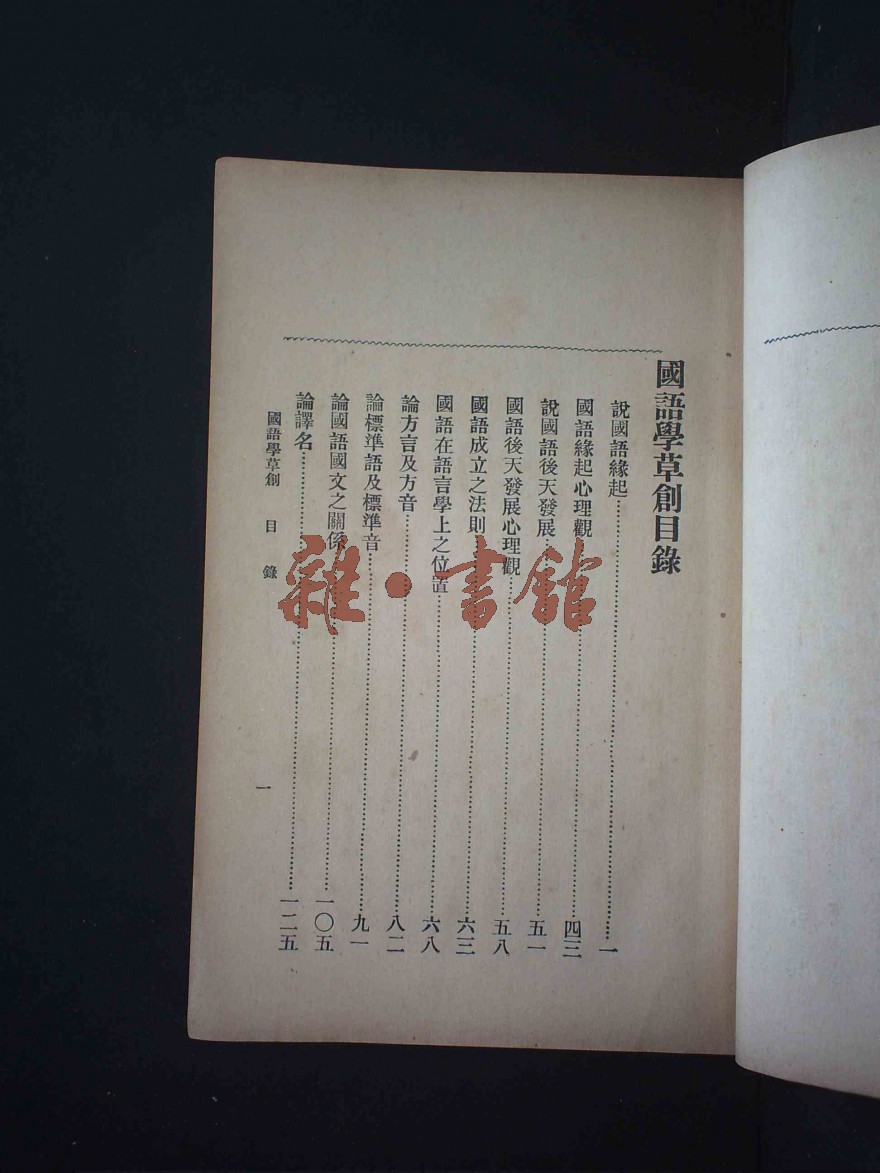 國語學草創目錄
說國語緣起……………………一
國語緣起心理觀……………………四三
說國語後天發展……………………五一
國語後天發展心理觀……………………五八
國語成立之法則……………………六三
國語在語言學上之位置……………………六八
論方言及方音……………………八二
論標準語及標準音……………………九一
論國語國文之關係……………………一〇五
論譯名……………………一二五
國語學草創 目錄 一
雜·書館